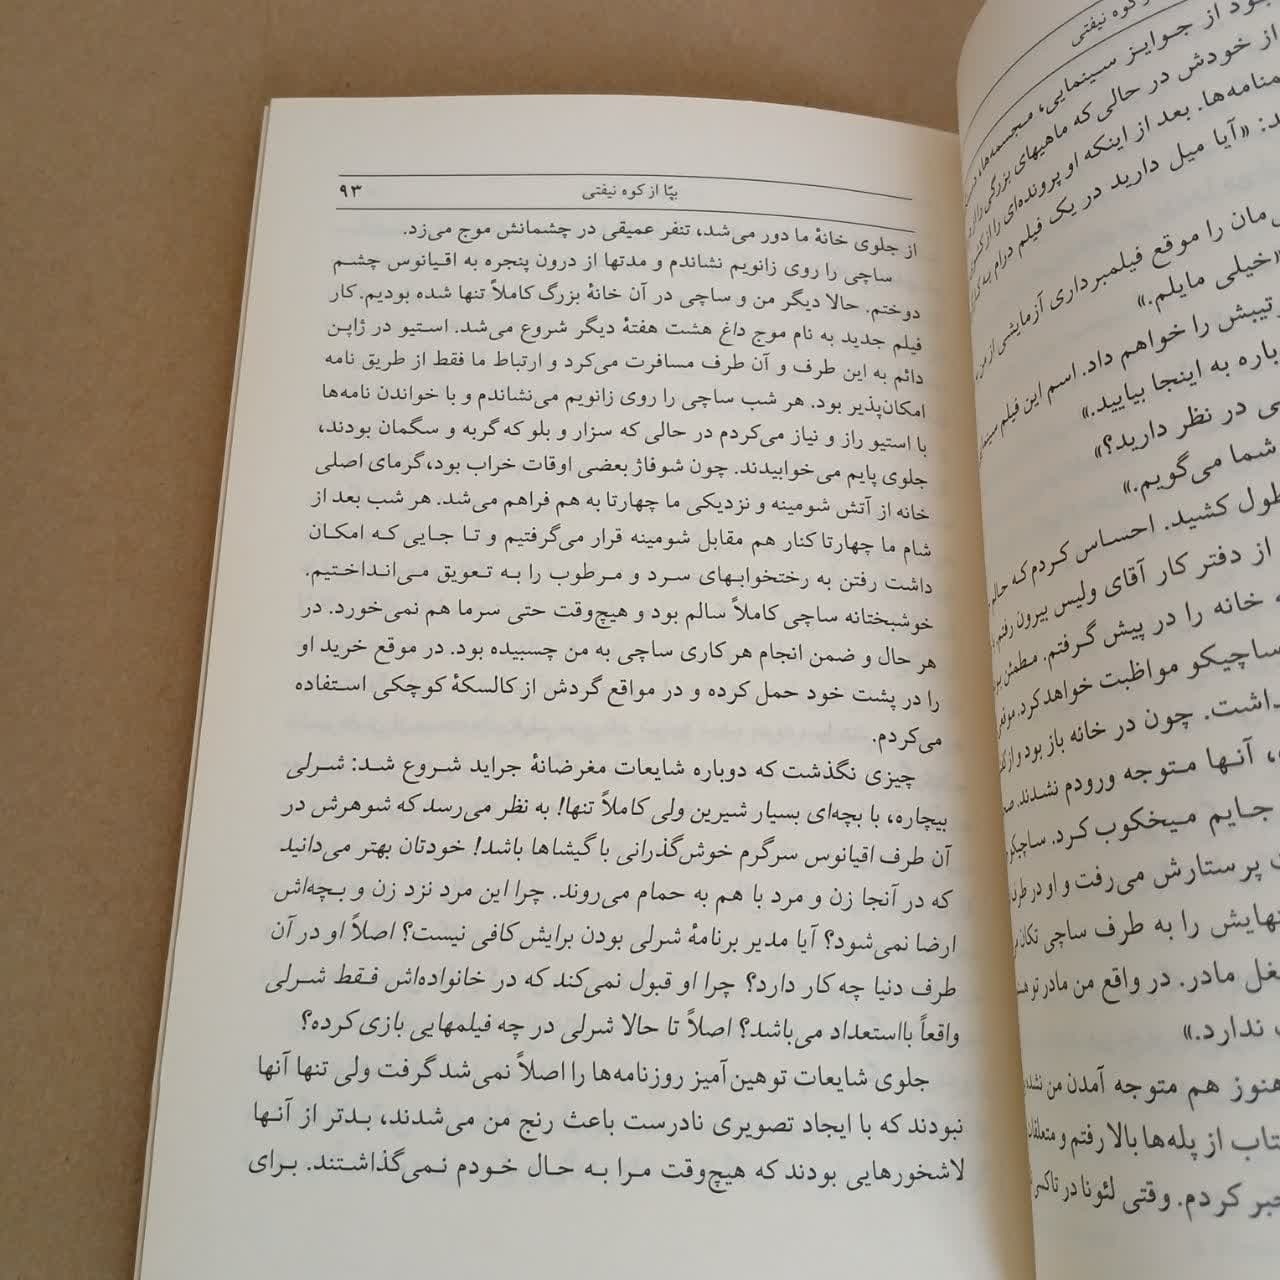 کوه نیفتی
بود از جوایز سینمایی، مجسمه‌ها،
از خودش در حالی که ماهیهای بزرگی را
منامه‌ها. بعد از اینکه او پرونده‌ای را از
د: «آیا میل دارید در یک فیلم درام به
مان را موقع فیلمبرداری آزمایشی از من،
«خیلی مایلم.»
تیبش را خواهم داد. اسم این فیلم
باره به اینجا بیایید.»
ی در نظر دارید؟»
شما می‌گویم.»
طول کشید. احساس کردم که
از دفتر کار آقای ولیس بیرون رفتم،
خانه را در پیش گرفتم. مطمئن
ساچیکو مواظبت خواهد کرد.
داشت. چون در خانه باز بود و از
، آنها متوجه ورودم نشدند.
جایم میخکوب کرد. ساچیکو
پرستارش می‌رفت و او در
نهایش را به طرف ساچی تکان
غل مادر. در واقع من مادر تو
ندارد.»
هنوز هم متوجه آمدن من
تاب از پله‌ها بالا رفتم و
خبر کردم. وقتی لئونا در
بپّا از کوه نیفتی ۹۳
از جلوی خانهٔ ما دور می‌شد، تنفر عمیقی در چشمانش موج می‌زد.
ساچی را روی زانویم نشاندم و مدتها از درون پنجره به اقیانوس چشم
دوختم. حالا دیگر من و ساچی در آن خانهٔ بزرگ کاملاً تنها شده بودیم. کار
فیلم جدید به نام موج داغ هشت هفتهٔ دیگر شروع می‌شد. استیو در ژاپن
دائم به این طرف و آن طرف مسافرت می‌کرد و ارتباط ما فقط از طریق نامه
امکان‌پذیر بود. هر شب ساچی را روی زانویم می‌نشاندم و با خواندن نامه‌ها
با استیو راز و نیاز می‌کردم در حالی که سزار و بلو که گربه و سگمان بودند،
جلوی پایم می‌خوابیدند. چون شوفاژ بعضی اوقات خراب بود، گرمای اصلی
خانه از آتش شومینه و نزدیکی ما چهارتا به هم فراهم می‌شد. هر شب بعد از
شام ما چهارتا کنار هم مقابل شومینه قرار می‌گرفتیم و تا جایی که امکان
داشت رفتن به رختخوابهای سرد و مرطوب را به تعویق می‌انداختیم.
خوشبختانه ساچی کاملاً سالم بود و هیچ‌وقت حتی سرما هم نمی‌خورد. در
هر حال و ضمن انجام هر کاری ساچی به من چسبیده بود. در موقع خرید او
را در پشت خود حمل کرده و در مواقع گردش از کالسکهٔ کوچکی استفاده
می‌کردم.
چیزی نگذشت که دوباره شایعات مغرضانهٔ جراید شروع شد: شرلی
بیچاره، با بچه‌ای بسیار شیرین ولی کاملاً تنها! به نظر می‌رسد که شوهرش در
آن طرف اقیانوس سرگرم خوش‌گذرانی با گیشاها باشد! خودتان بهتر می‌دانید
که در آنجا زن و مرد با هم به حمام می‌روند. چرا این مرد نزد زن و بچه‌اش
ارضا نمی‌شود؟ آیا مدیر برنامهٔ شرلی بودن برایش کافی نیست؟ اصلاً او در آن
طرف دنیا چه کار دارد؟ چرا او قبول نمی‌کند که در خانواده‌اش فقط شرلی
واقعاً بااستعداد می‌باشد؟ اصلاً تا حالا شرلی در چه فیلمهایی بازی کرده؟
جلوی شایعات توهین‌آمیز روزنامه‌ها را اصلاً نمی‌شد گرفت ولی تنها آنها
نبودند که با ایجاد تصویری نادرست باعث رنج من می‌شدند، بدتر از آنها
لاشخورهایی بودند که هیچ‌وقت مرا به حال خودم نمی‌گذاشتند. برای